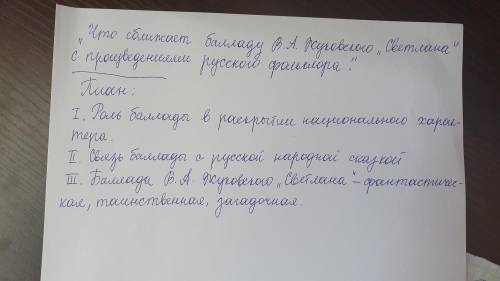 „Что сближает балладу В.А. Жуковского „Светлана“
с произведениями русского фольклора?“
План:
I. Роль баллады в раскрытии национального харак-
тера.
II. Связь баллады с русской народной сказкой
III. Баллада В.А. Жуковского „Светлана“ – фантастичес-
кая, таинственная, загадочная.